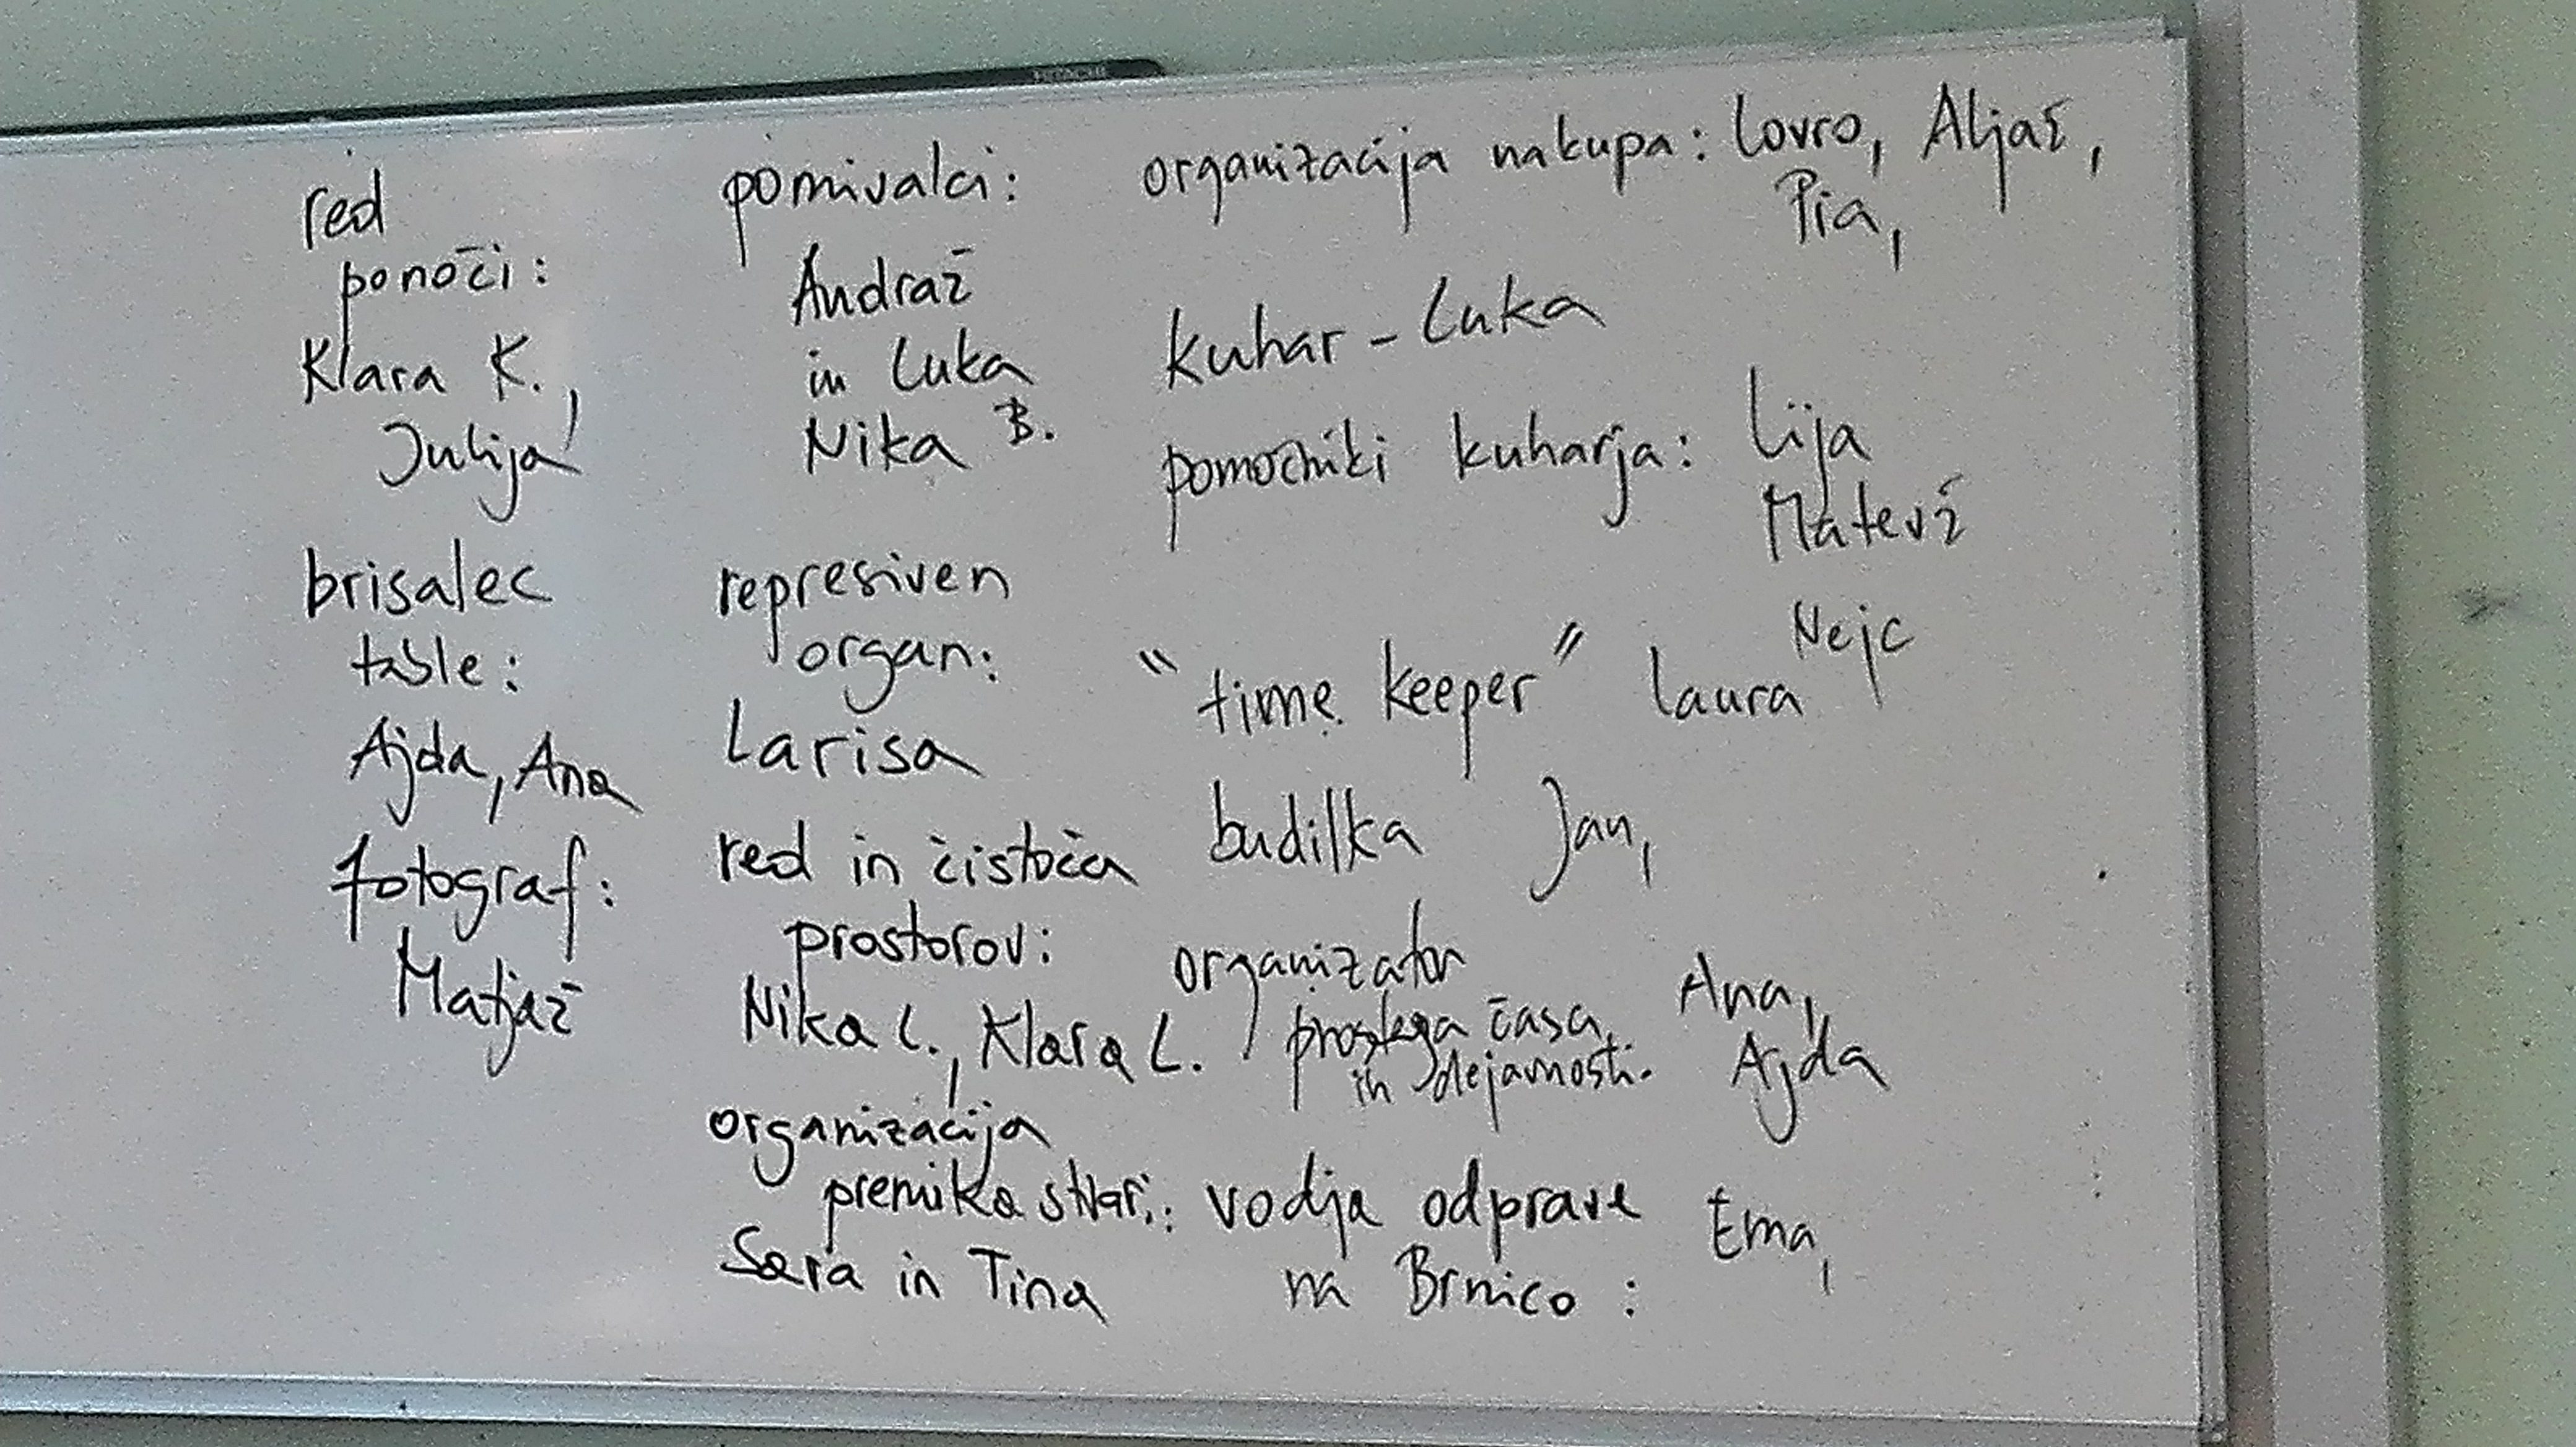 red
ponoči:
Klara K.,
Julija
brisalec
table:
Ajda, Ana
fotograf:
Matjaž
pomivalci:
Andraž
in Luka
Nika B.
represiven
organ:
Larisa
red in čistoča
prostorov:
Nika L., Klara L.
organizacija
premika stvari:
Sara in Tina
organizacija nakupa: Lovro, Aljaž,
Pia,
kuhar - Luka
pomočniki kuharja: Lija
Matevž
Nejc
"time keeper" Laura
budilka Jan,
organizator
prostega časa Ana,
in dejavnosti. Ajda
vodja odprave Ema,
na Brnico: